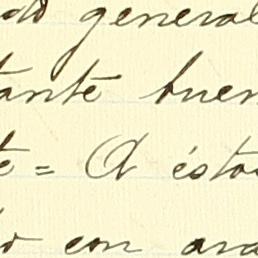 general
tante buen
te = A ésto
o con ora